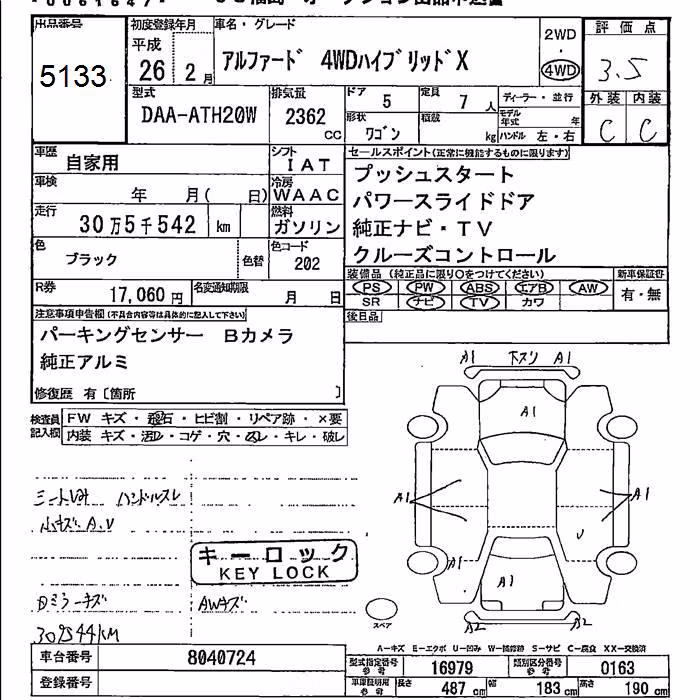 出品番号 5133
初度登録年月 平成 26年 2月
車名・グレード アルファード 4WDハイブリッドX
2WD・4WD
評価点 3.5
外装 C 内装 C
型式 DAA-ATH20W
排気量 2362 CC
ドア 5
定員 7人
形状 ワゴン
積載 kg
ディーラー・並行
モデル年式 年
ハンドル 左・右
車歴 自家用
シフト IAT
車検 年 月( 日)
冷房 WAAC
走行 30万5千542 km
燃料 ガソリン
色 ブラック 色替
色コード 202
R券 17,060円
名変通知期限 月 日
セールスポイント(正常に機能するものに限ります)
プッシュスタート
パワースライドドア
純正ナビ・TV
クルーズコントロール
装備品(純正品に限り○をつけてください)
PS PW ABS エアB AW
SR ナビ TV カワ
新車保証書 有・無
後日品
注意事項申告欄(不具合内容等は具体的に記入して下さい)
パーキングセンサー Bカメラ
純正アルミ
修復歴 有〔箇所 〕
検査員記入欄
FW キズ・飛石・ヒビ割・リペア跡・×要
内装 キズ・汚レ・コゲ・穴・スレ・キレ・破レ
ハンドルスレ
小キズA.U
キーロック
KEY LOCK
ミラーキズ AWキズ
A1 下スリ A1
A1
A1 A1
A1 U
A1
A2 A2
スペア
A-キズ E-エクボ U-凹み W-補修跡 S-サビ C-腐食 XX-交換済
車台番号 8040724
登録番号
型式指定番号参考 16979
類別区分番号参考 0163
車庫証明用参考 長さ 487cm 幅 183cm 高さ 190cm